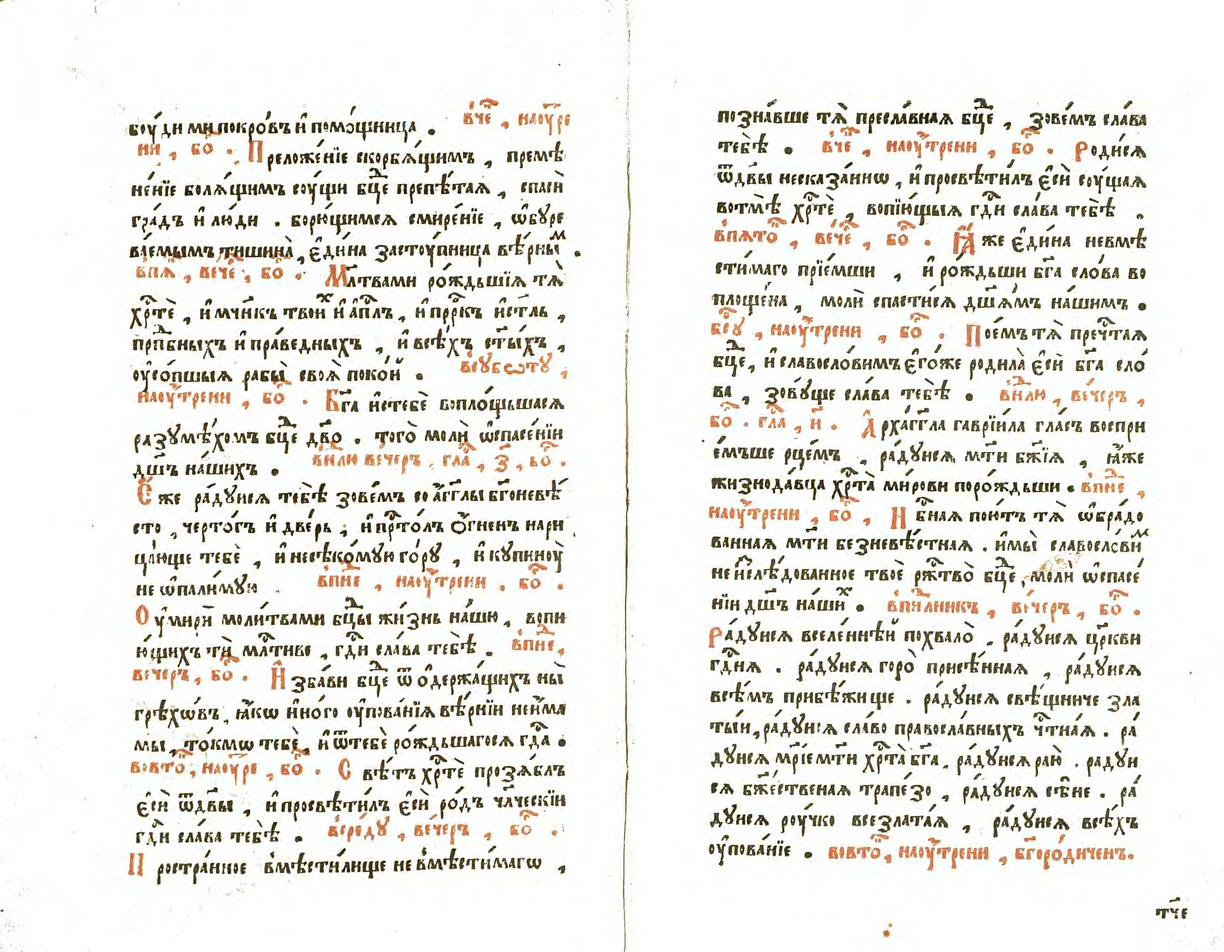 боу́ди ми покро́въ и҆ помо́щница . в̾че҃ , наоу҆́тре
ни , бо҃ . Преложе́нїе скорбѧ́щимъ , премѣ
не́нїе болѧ́щимъ соу́щи бц҃е препѣ́таѧ , спаси̏
гра́дъ и҆ лю́ди . борю́щимсѧ смире́нїе , ѡ҆бꙋре
ва́емымъ тишина̀ , є҆ди́на застоу́пница вѣ́рны́м .
в̾пѧ҃ , вече҃ , бо҃ . Мл҃твами ро́ждьшїѧ тѧ̀
хрⷭ҇тѐ , и҆ мч҃никъ твои́х и҆ а҆пл҃ъ , и҆ прⷪ҇ркъ и҆ ст҃ль ,
прпⷣбныхъ и҆ пра́ведныхъ , и҆ всѣ́хъ ст҃ы́хъ ,
оу҆со́пшыѧ рабы̀ своѧ̀ поко́й . в̾сꙋбѡ́тꙋ ,
наоу҆́трени , бо҃ . Бг҃а и҆стебѐ вопло́щьшасѧ
разꙋмѣ́хомъ бц҃е дв҃о . того̀ молѝ ѡ҆спасе́нїи
дш҃ъ на́шихъ . в̾нлю вечеръ , гла҃ , з҃ , бо҃ .
Е҆́же ра́дꙋисѧ тебѣ̀ зове́мъ со а҆́гг҃лы бг҃оневѣ́
сто , черто́гъ и҆ две́рь , и҆ прⷭ҇то́лъ ѻ҆́гненъ нари
ца́юще тебѐ , и҆ несѣко́мꙋю го́рꙋ , и҆ кꙋпиноу̀
не ѡ҆пали́мꙋю . в̾пне҃ , наоу҆́трени , бо҃ .
Оу҆мирѝ моли́твами бц҃ы жи́знь на́шꙋ , вопи
ю́щихъ тѝ мл҃тиве , гдⷭ҇и сла́ва тебѣ̀ . в̾пне҃ ,
вечеръ , бо҃ . И҆збави бц҃е ѿ ѻ҆держа́щихъ ны̀
грѣхѡ́въ , ꙗ҆́кѡ и҆но́го оу҆пова́нїѧ вѣ́рнїи не и҆́ма
мы , то́кмѡ тебѐ , и҆ ѿтебѐ ро́ждьшагосѧ гдⷭ҇а .
вовто҃ , наоу҆́тре , бо҃ . Свѣ́тъ хрⷭ҇тѐ прозѧ́блъ
є҆сѝ ѿдв҃ы , и҆ просвѣти́лъ є҆сѝ ро́дъ чл҃ческїи
гдⷭ҇и сла́ва тебѣ̀ . в̾средꙋ , ве́черъ , бо҃ .
Простра́нное в̾мѣсти́лище не в̾мѣсти́магѡ ,
позна́вше тѧ̀ пресла́внаѧ бц҃е , зове́мъ сла́ва
тебѣ̀ . в̾че҃ , наоу҆́трени , бо҃ . Роди́сѧ
ѿдв҃ы несказа́ннѡ , и҆ просвѣти́лъ є҆сѝ соу́щаѧ
вотмѣ̀ хрⷭ҇тѐ , вопїю́щыѧ гдⷭ҇и сла́ва тебѣ̀ .
в̾пѧто҃ , вече҃ , бо҃ . Ꙗ҆́же є҆ди́на невмѣ
сти́маго прїе́мши , и҆ ро́ждьши бг҃а сло́ва во
площе́на , молѝ спасти́сѧ дш҃а́мъ на́шимъ .
в̾сꙋ҃ , наоу҆́трени , бо҃ . Пое́мъ тѧ̀ пречⷭ҇таѧ
бц҃е , и҆ славосло́вимъ є҆го́же родила̀ є҆сѝ бг҃а сло́
ва , зовꙋ́ще сла́ва тебѣ̀ . в̾нлю , ве́черъ ,
бо҃ . гла҃ , и҃ . А҆рха́гг҃ла гаврїи́ла гла́съ воспри
е́мъше рце́мъ , ра́дꙋисѧ мт҃и бж҃їѧ , ꙗ҆́же
жизнода́вца хрⷭ҇та̀ ми́рови поро́ждьши . в̾пне҃ ,
наоу҆́трени , бо҃ , Нб҃наѧ пою́тъ тѧ̀ ѡ҆бра́до
ваннаѧ мт҃и безневѣ́стнаѧ . и҆мы̀ славосло́вим
не и҆слѣ́дованное твоѐ ржⷭ҇тво̀ бц҃е , молѝ ѡ҆спасе́
нїи дш҃ъ на́ших . в̾пн҃лникъ , ве́черъ , бо҃ .
Ра́дꙋисѧ вселе́ннѣй похвало̀ , ра́дꙋисѧ цр҃кви
гдⷭ҇нѧ . ра́дꙋисѧ горо̀ присѣ́ннаѧ , ра́дꙋисѧ
всѣ́мъ прибѣ́жище . ра́дꙋисѧ свѣ́щниче зла
ты́и , ра́дꙋисѧ сла́во правосла́вныхъ чⷭ҇тна́ѧ . ра́
дꙋисѧ мр҃їе мт҃и хрⷭ҇та̀ бг҃а . ра́дꙋисѧ раю̀ . ра́дꙋи
сѧ бж҃е́ственаѧ трапе́зо , ра́дꙋисѧ сѣ́не . ра́
дꙋисѧ роу́чко всезлата́ѧ , ра́дꙋисѧ всѣ́хъ
оу҆пова́нїе . вовто҃ , наоу҆́трени , бг҃оро́диченъ .
тче